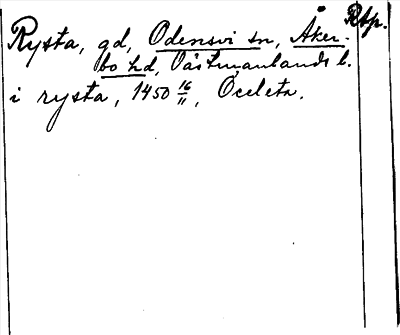 Rtp.
Rysta, gd, Odensvi sn, Åker-
bo hd, Västmanlands l.
i rysta, 1450 16/11, Öceleta.